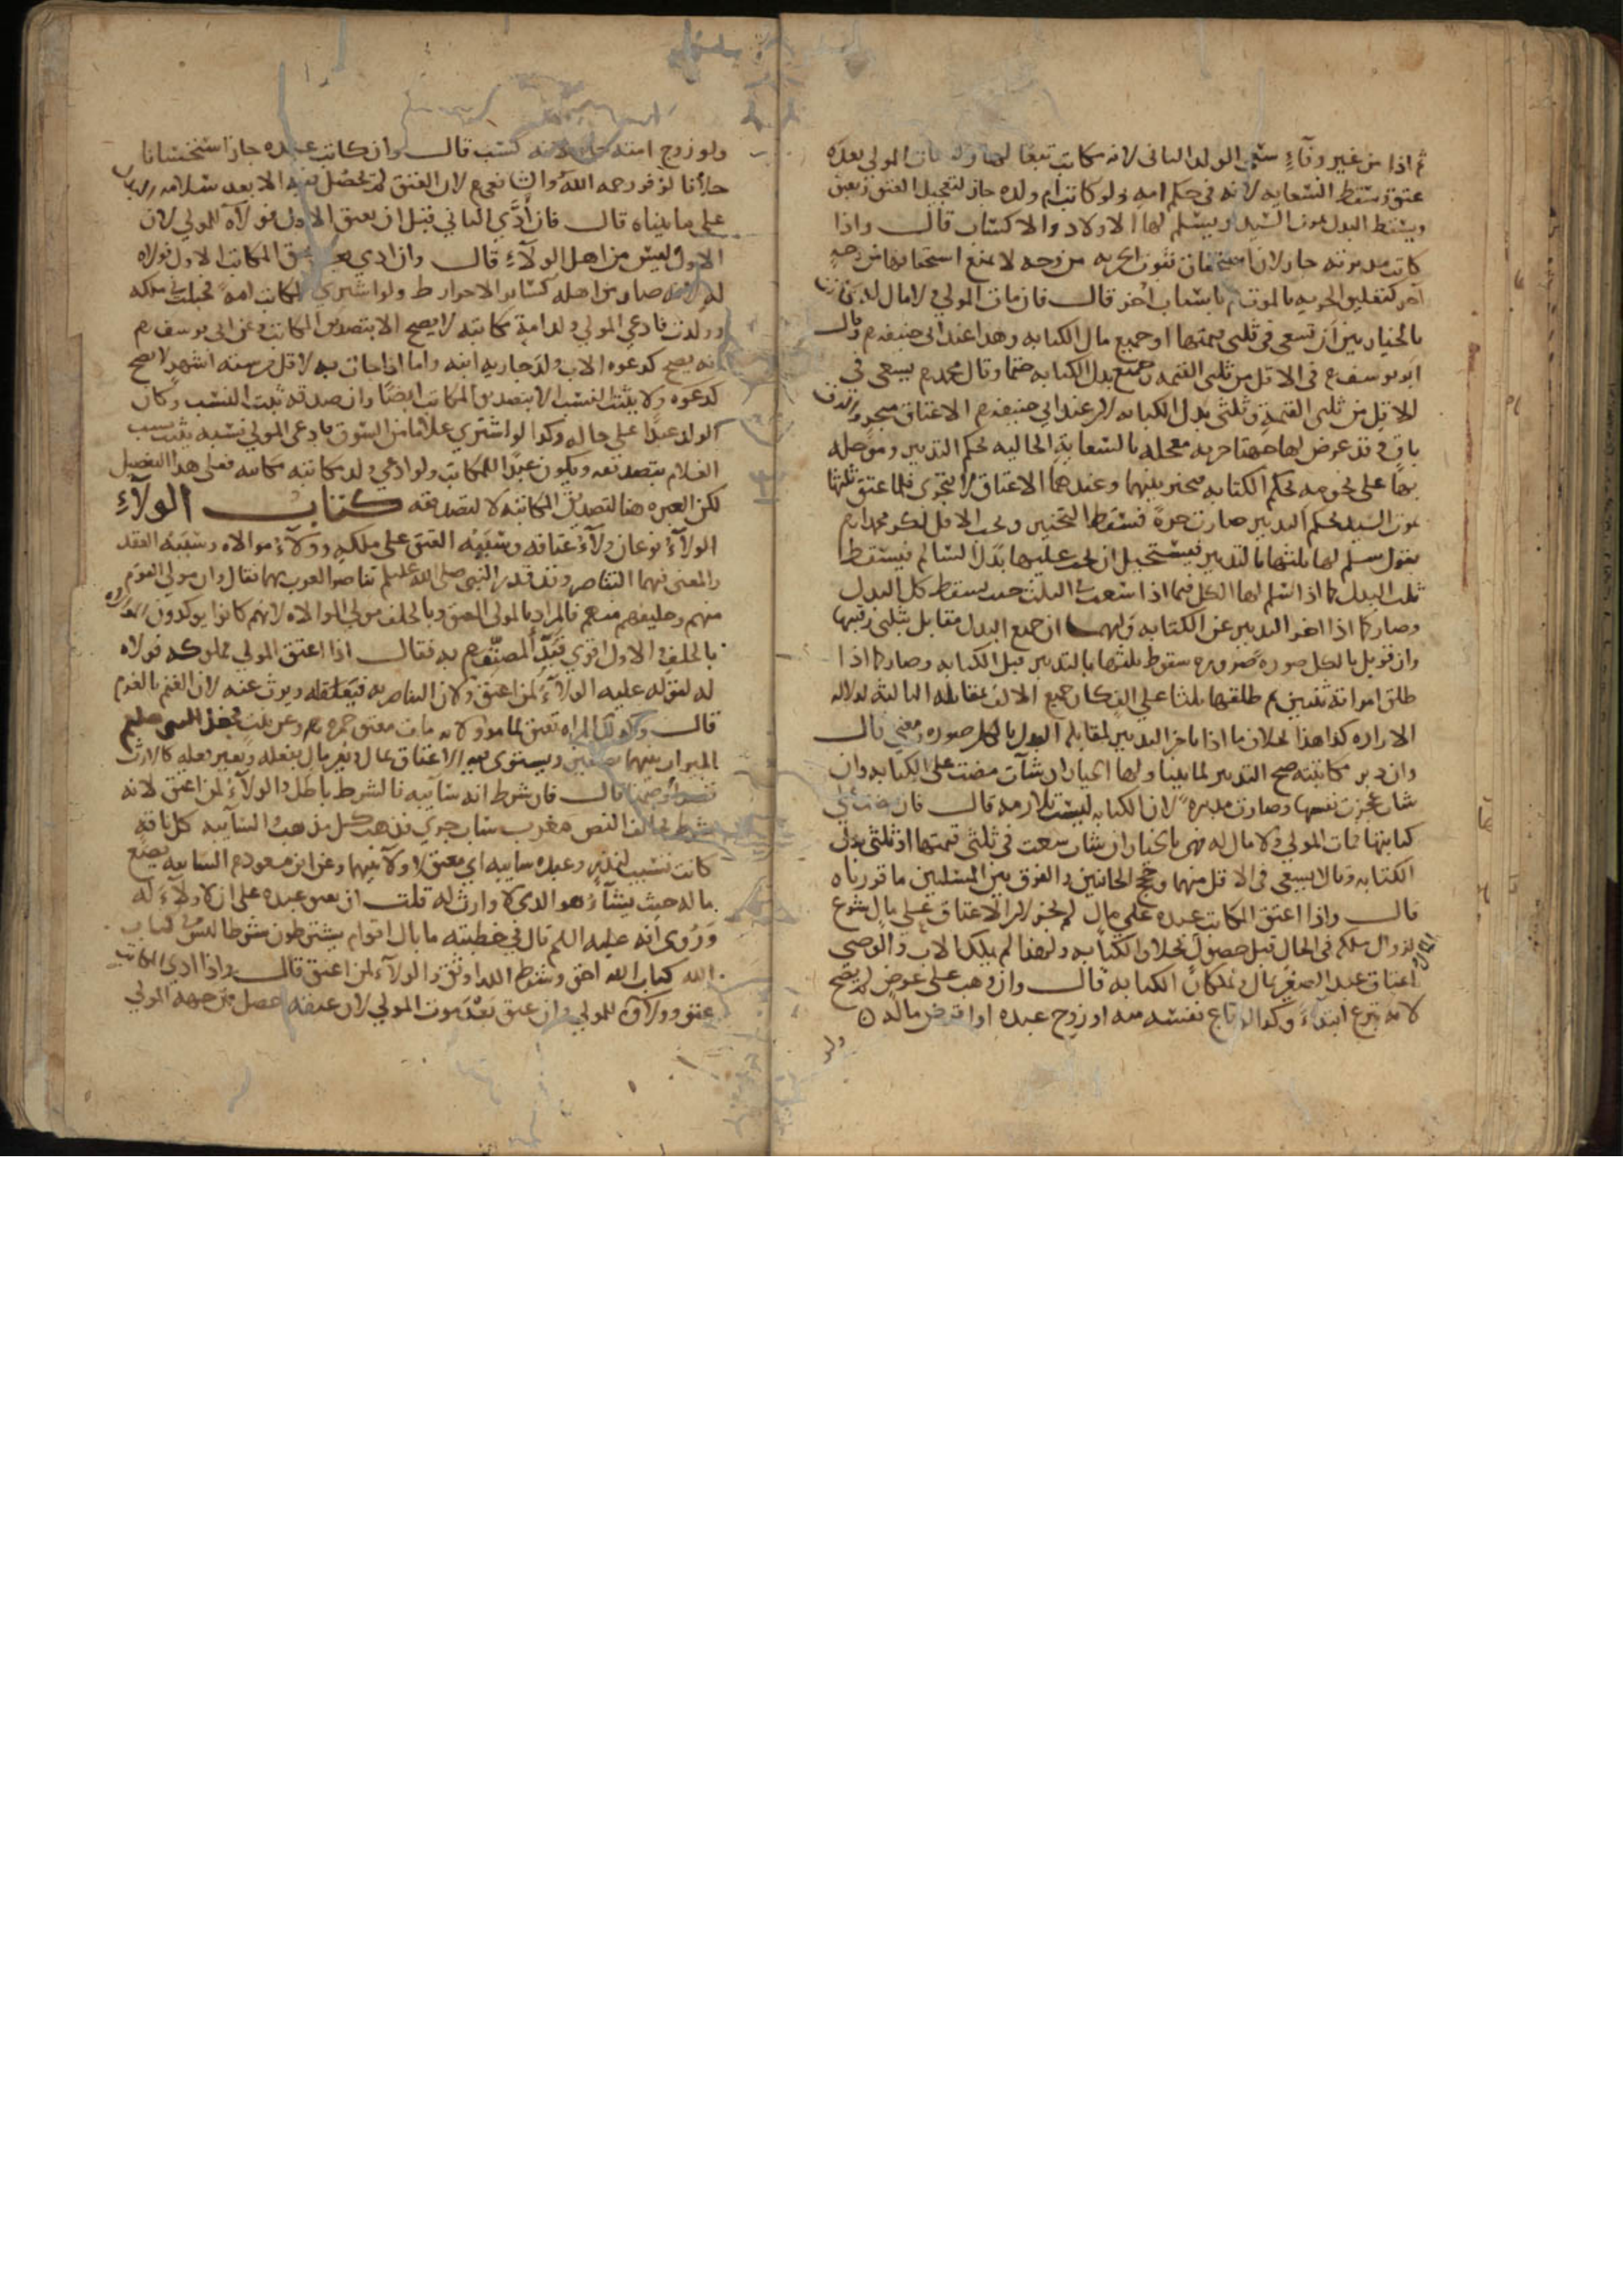 ثم اذا من غير وفاء سعى الولد الثانى لانه مكاتب تبعا لها ولو مات المولى بعده
عتق وسقط السعايه لانه فى حكم امه ولو كاتب ام ولده جاز لتعجيل العتق وتعتق
ويسقط البدل بموت السيد ويسلم لها الاولاد والاكساب قال واذا
كاتب مدبرته جاز لان ثبوت الحريه من وجه لا يمنع استحقاقها من وجه
اخر كتعليق الحريه بالموت باسباب اخر قال فان مات المولى ولا مال له كانت
بالخيار بين ان تسعى فى ثلثى قيمتها او جميع مال الكتابه وهذا عند ابى حنيفه رح وقال
ابو يوسف رح فى الاقل من ثلثى القيمه وجميع بدل الكتابه حتما وقال محمد رح يسعى فى
الاقل من ثلثى القيمة وثلثى بدل الكتابه لان عند ابى حنيفه رح الاعتاق متجز والرق
باق وقد عرض لها جهتا حريه معجله بالسعاية الحاليه بحكم التدبير وموجله
بها على نجومه بحكم الكتابه فتخير بينهما وعندهما الاعتاق لا يتجزى فلما عتق ثلثها
بموت السيد بحكم التدبير صارت حرة فسقط التخيير ويجب الاقل لكن محمدا رح
يقول سلم لها ثلثها بالتدبير فيستحيل ان يجب عليها بدل السالم فيسقط
ثلث البدل كما اذا سلم لها الكل فيما اذا اتسعت فى الثلث حيث يسقط كل البدل
وصار كما اذا اخر التدبير عن الكتابه ولهما ان جميع البدل مقابل بثلثى رقبتها
وان قوبل بالكل صورة ضرورة سقوط ثلثها بالتدبير قبل الكتابه وصار كما اذا
طلق امراته ثنتين ثم طلقها ثلثا على الف كان جميع الالف بمقابلة الثالثة لدلالة
الاراده كذا هذا بخلاف ما اذا تاخر التدبير لمقابلة البدل بالكل صورة ومعنى قال
وان دبر مكاتبته صح التدبير لما بينا ولها الخيار ان شات مضت على الكتابه وان
شات عجزت نفسها وصارت مدبرة لان الكتابه ليست بلازمه قال فان مضت على
كتابتها فمات المولى ولا مال له فهى بالخيار ان شات سعت فى ثلثى قيمتها او ثلثى بدل
الكتابه وقالا يسعى فى الاقل منهما وحجج الجانبين والفرق بين المسلتين ما قررناه
قال واذا اعتق المكاتب عبده على مال لم يجز لان الاعتاق على مال شرع
لزوال ملكه فى الحال قبل حصول بخلاف الكتابه ولهذا لم يملكه الاب والوصى
اعتاق عبد الصغير بمال ويملكان الكتابه قال وان وهب على عوض لم يصح
لانه تبرع ابتداء وكذا لو باع نفسه منه او زوج عبده او اقرض ماله
ولو زوج امته جاز لانه كسب قال وان كاتب عبده جاز استحسانا
خلافا لزفر رحمه الله والشافعى رح لان العتق لم يحصل فيه الا بعد سلامه البدل
على ما بيناه قال فان ادى الثانى قبل ان يعتق الاول فولاه للمولى لان
الاول ليس من اهل الولاء قال وان ادى بعد عتق المكاتب الاول فولاه
له لانه صار من اهله كساير الاحرار ط ولو اشترى المكاتب امة فحبلت فى ملكه
وولدت فادعى المولى ولد امة مكاتبه لا يصح الا بتصديق المكاتب وعن ابى يوسف رح
انه يصح كدعوه الاب ولد جاريه ابنه واما اذا جات به لاقل من سته اشهر لا يصح
كدعوه ولا يثبت النسب الا بتصديق المكاتب ايضا وان صدقه ثبت النسب وكان
الولد عبدا على حاله وكذا لو اشترى غلاما من السوق فادعى المولى نسبه يثبت نسب
الغلام بتصديقه ويكون عبدا للمكاتب ولو ادعى ولد مكاتبه مكاتبه فعلى هذا التفصيل
لكن العبره هنا لتصديق المكاتبه لا لتصديقه كتاب الولاء
الولاء نوعان ولاء عتاقه وسببه العتق على ملكه وولاء موالاه وسببه العقد
والمعنى فيهما التناصر وقد قدر النبى صلى الله عليه وسلم تناصر العرب بهما فقال وان مولى القوم
منهم وحليفهم منهم فالمراد بالمولى العتق وبالحلف مولى الموالاه لانهم كانوا يوكدون الموالاه
بالحلف والاول اقوى فبدا المصنف رح به فقال اذا اعتق المولى مملوكه فولاه
له لقوله عليه الولاء لمن اعتق ولان التناصر به فيعقله ويرث عنه لان الغنم بالغرم
قال وكذلك المراه تعتق لما روينا ولانه مات معتق حمزه رح وعن بنت فجعل النبى صلعم
الميراث بينهما نصفين ويستوى فيه الاعتاق بمال وغير مال بفعله وبغير فعله كالارث
قال فان شرط انه سائبه فالشرط باطل والولاء لمن اعتق لانه
شرط يخالف النص مغرب ساب جرى فذهب كل مذهب السائبه كل ناقه
كانت تسيب لنذر وعبده سائبه اى معتق لا ولا بينهما وعن ابن مسعود رح السائبه يضع
ماله حيث يشاء هو الذى لا وارث له قلت ان يعتق عبده على ان لا ولاء له
وروى انه عليه السلم قال فى خطبته ما بال اقوام يشترطون شروطا ليس فى كتاب
الله كتاب الله احق وشرط الله اوثق والولاء لمن اعتق قال واذا ادى المكاتب
عتق وولاؤه للمولى وان عتق بعد موت المولى لان عتقه حصل من جهه المولى